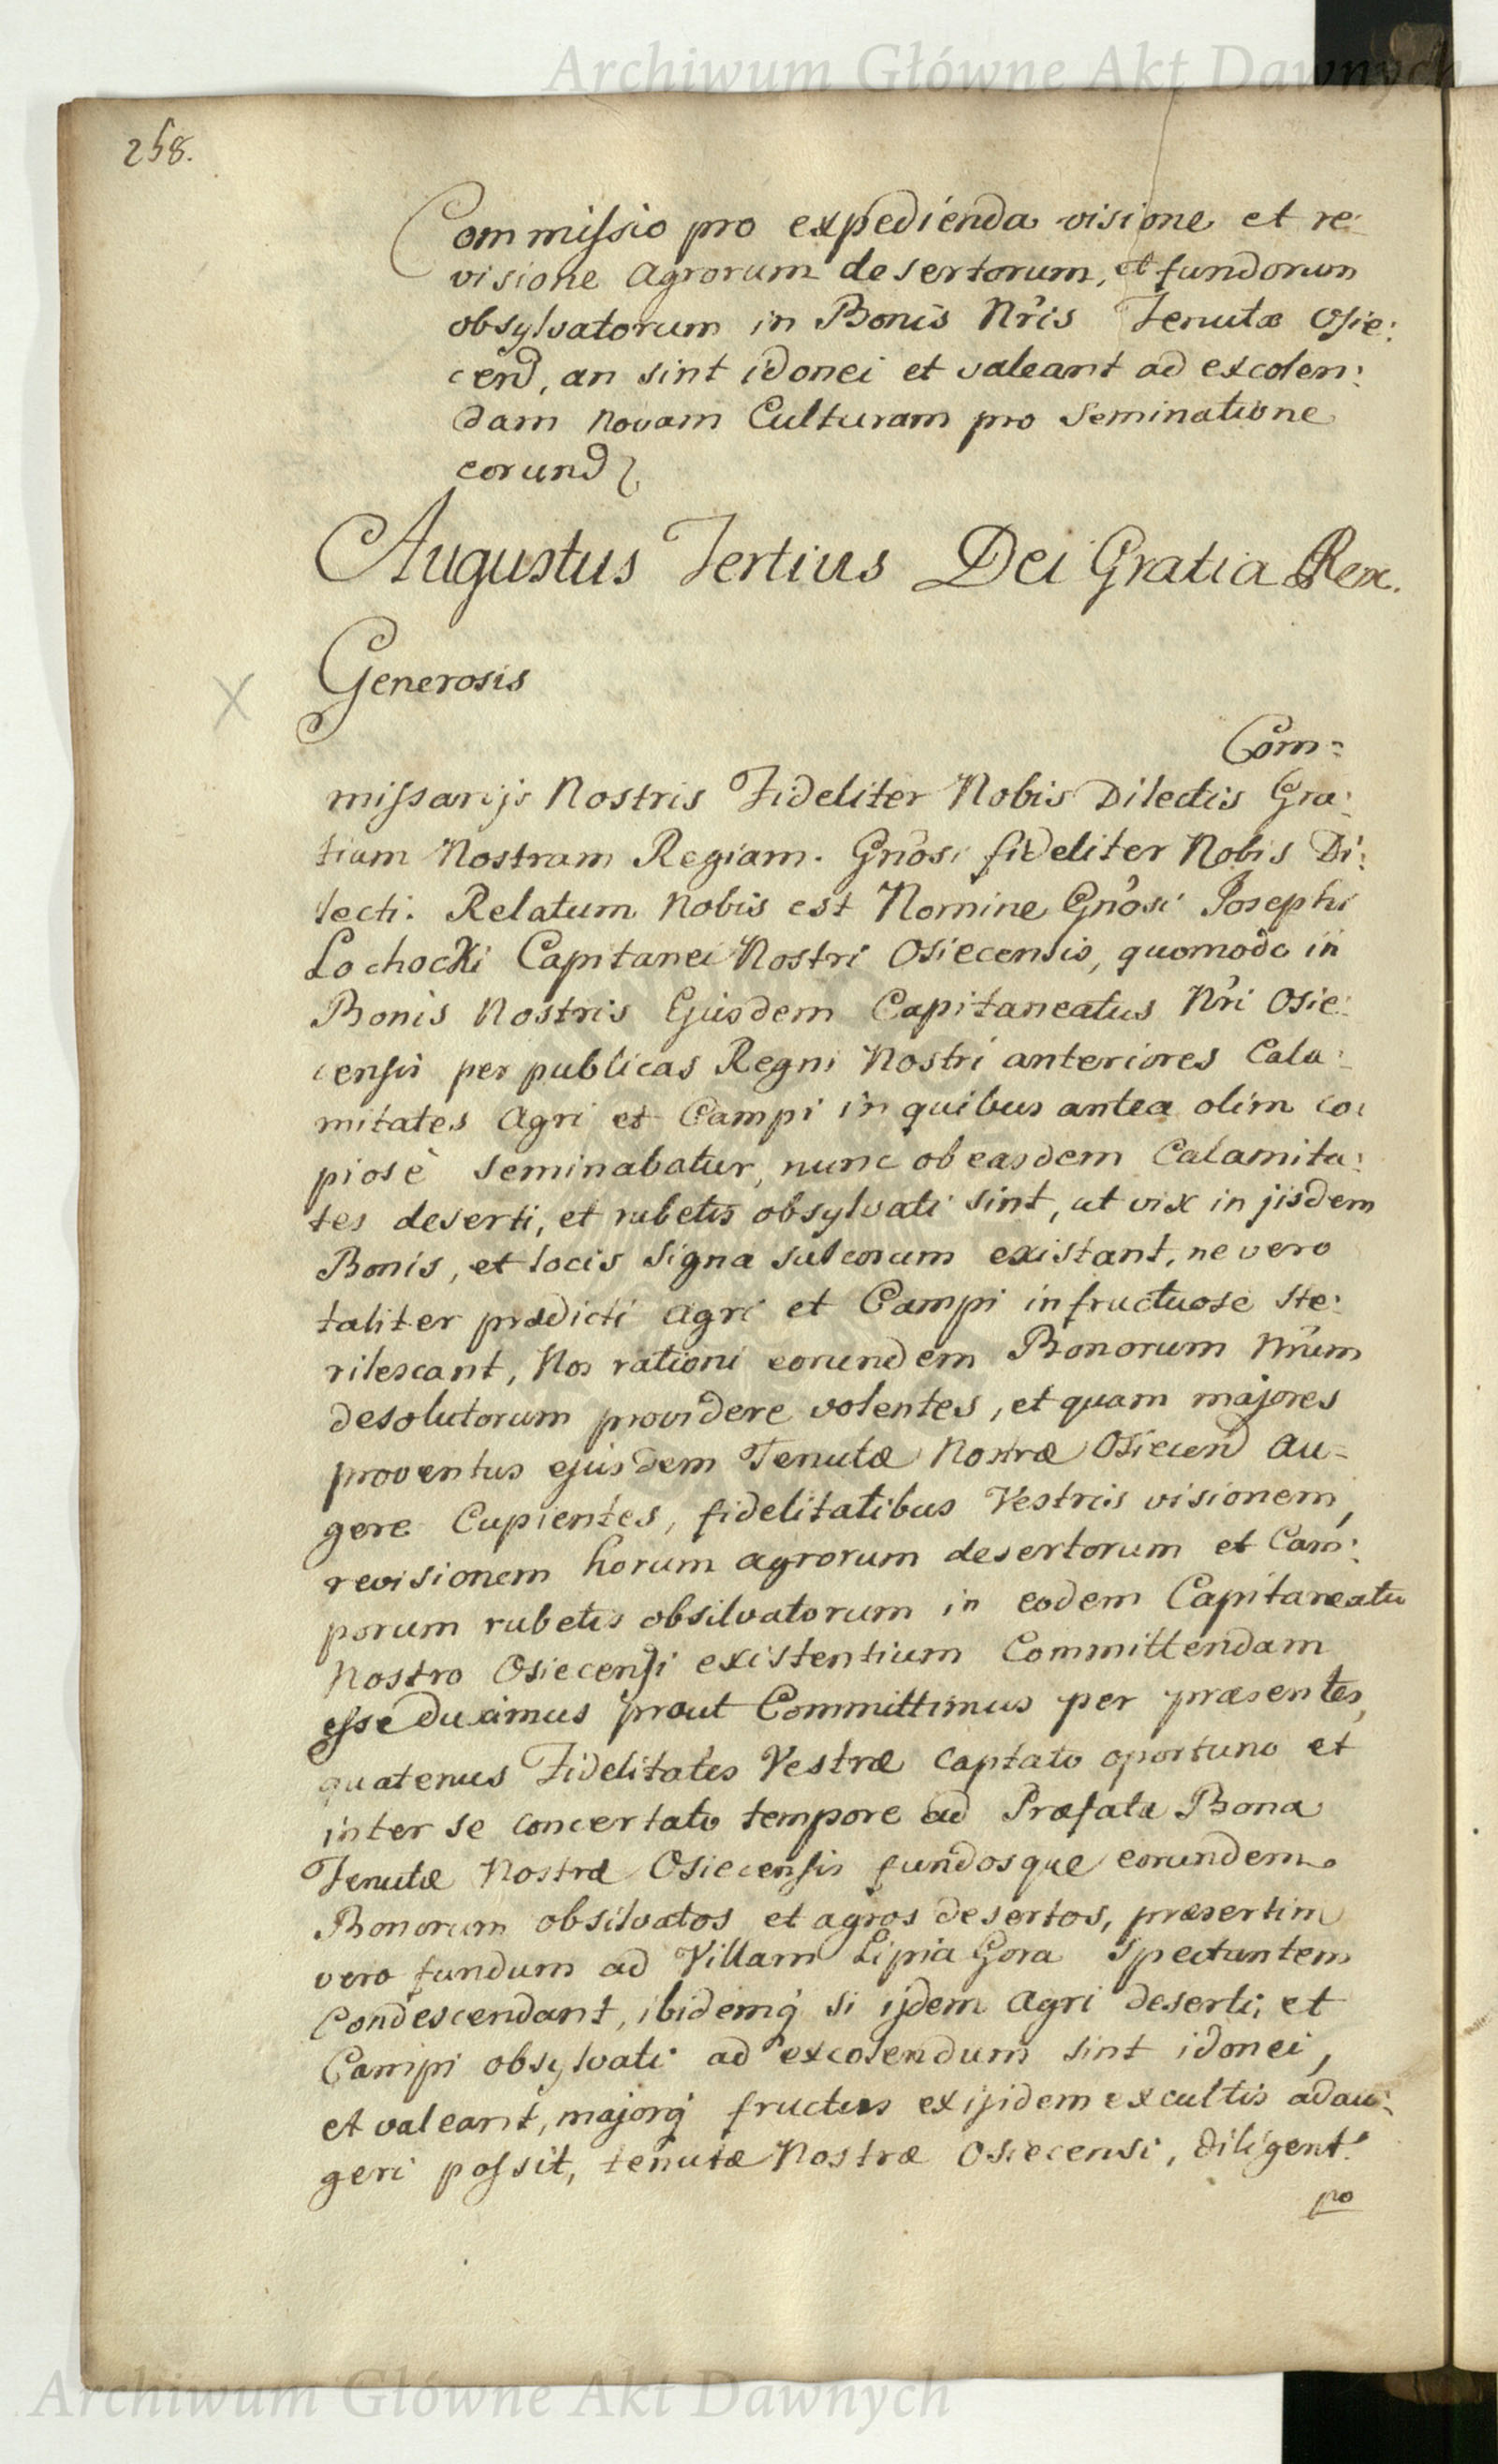 Archiwum Główne Akt Dawnych
258.
Commissio pro expedienda visione et re:
visione agrorum desertorum, et fundorum
obsylvatorum in Bonis Nr̃is Tenutæ Osie:
cen͠d, an sint idonei et valeant ad excolen:
dam novam Culturam pro Seminatione
eorund
Augustus Tertius Dei Gratia Rex.
Generosis
Com=
missarijs Nostris Fideliter Nobis Dilectis Gra:
tiam Nostram Regiam. Gnosi fideliter Nobis Di:
lecti. Relatum Nobis est Nomine Gnosi Josephi
Lochocki Capitanei Nostri Osiecensis, quomodo in
Bonis Nostris Ejusdem Capitaneatus Nr̃i Osie:
censis per publicas Regni Nostri anteriores Cala:
mitates Agri et Campi in quibus antea olim co:
piosè Seminabatur, nunc ob easdem Calamita:
tes deserti, et rubetis obsylvati sint, ut vix in jisdem
Bonis, et locis Signa sulcorum existant, ne vero
taliter prædicti Agri et Campi infructuose ste:
rilescant, Nos rationi eorundem Bonorum Nr̃um
desolutorum providere volentes, et quam majores
proventus ejusdem Tenutæ Nostræ Osiecen͠d au=
gere Cupientes, fidelitatibus Vestris visionem,
revisionem horum agrorum desertorum et Cam:
porum rubetis obsilvatorum in eodem Capitaneatu
Nostro Osiecensi existentium Committendam
esse duximus prout Committimus per præsentes,
quatenus Fidelitates Vestræ Captato oportuno et
inter se concertato tempore ad Præfata Bona
Tenutæ Nostræ Osiecensis fundosque eorundem
Bonorum obsilvatos et agros desertos, præsertim
vero fundum ad Villam Lipia Gora Spectantem
Condescendant, ibidemq́ si ijdem Agri deserti, et
Campi obsylvati ad excolendum sint idonei,
et valeant, majorq́ fructus ex ijsdem excultis adau:
geri possit, tenutæ Nostræ Osiecensi, diligent.
pro
Archiwum Główne Akt Dawnych